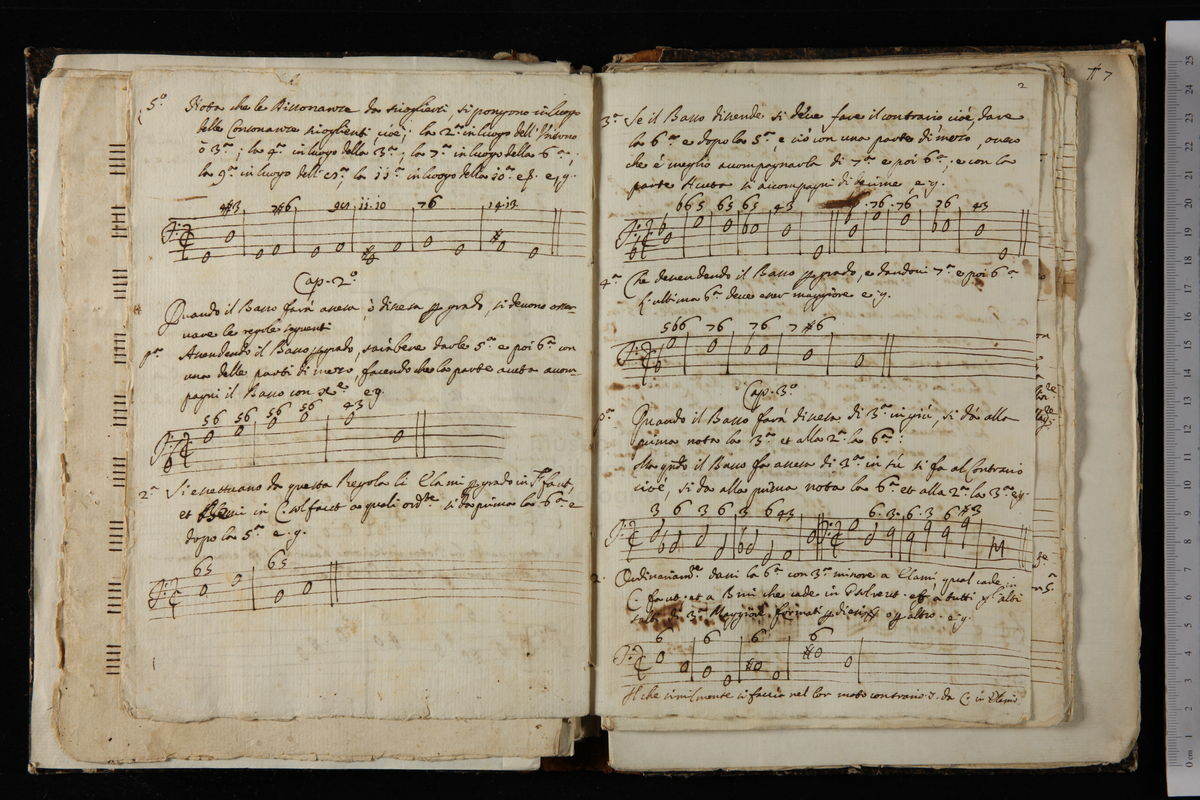 5.º Nota che le Dissonanze da sciogliersi si pongono in luogo
delle Consonanze scioglienti cioè; la 2.ª in luogo dell'Unisono
ò 3.ª; la 4.ª in luogo della 3.ª; la 7.ª in luogo della 6.ª;
la 9.ª in luogo dell' , la 11.ª in luogo della 10.ª e.g.
#3 7#6 11·10 76 14·13
Cap. 2.º
Quando il Basso farà ascesa, ò discesa per grado, si devono osser-
vare le regole seguenti
Ascendendo il Basso per grado, sarebbe darle 5.ª e poi 6.ª con
una delle parti di mezo, facendo che la parte acuta accom-
pagni il Basso con Xe e.g.
56 56 56 56 43
2.ª Si eccettuano da questa Regola li Elami per grado in Ffaut,
et Bmi in C. solfaut a quali ord.te si da prima la 6.ª è
dopo la 5.ª e.g.
65 65
2
3.ª Se il Basso discende si deve fare il contrario cioè, dare
la 6.ª e dopo la 5.ª e ciò con una parte di mezo, overo
che è meglio accompagnarla di 7.ª e poi 6.ª, e con la
parte Acuta si accompagni di decime, e.g.
665 65 65 43 6 76·76 76 43
4.ª Che descendendo il Basso per grado, e dandosi 7.ª e poi 6.ª
l'ultima 6.ª deve esser maggiore e.g.
566 76 76 7#6
Cap. 3.º
Quando il Basso farà discesa di 3.ª in giù, si dà alla
prima nota la 3.ª et alla 2.ª la 6.ª:
Ma il Basso fa ascesa di 3.ª in sù si fa al Contrario
cioè, si da alla prima nota la 6.ª et alla 2.ª la 3.ª e.g.
3 6 3 6 3 6 43 6·3·6·3 6 #3
2. Ordinariam.te dassi la 6.ª con 3.ª minore a Elami qual cade in
C. faut et a Bmi che cade in Gsolreut et a tutti gl'altri
salti di 3.ª Maggiore formati o altro e.g.
6 6 6 6
Il che similmente si faccia nel lor moto contrario da C. in Elami